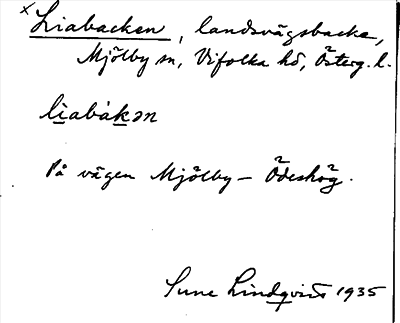 × Liabacken, landsvägsbacke,
Mjölby sn, Vifolka hd, Österg. l.
li̯abàkən
På vägen Mjölby – Ödeshög.
Sune Lindqvist 1935